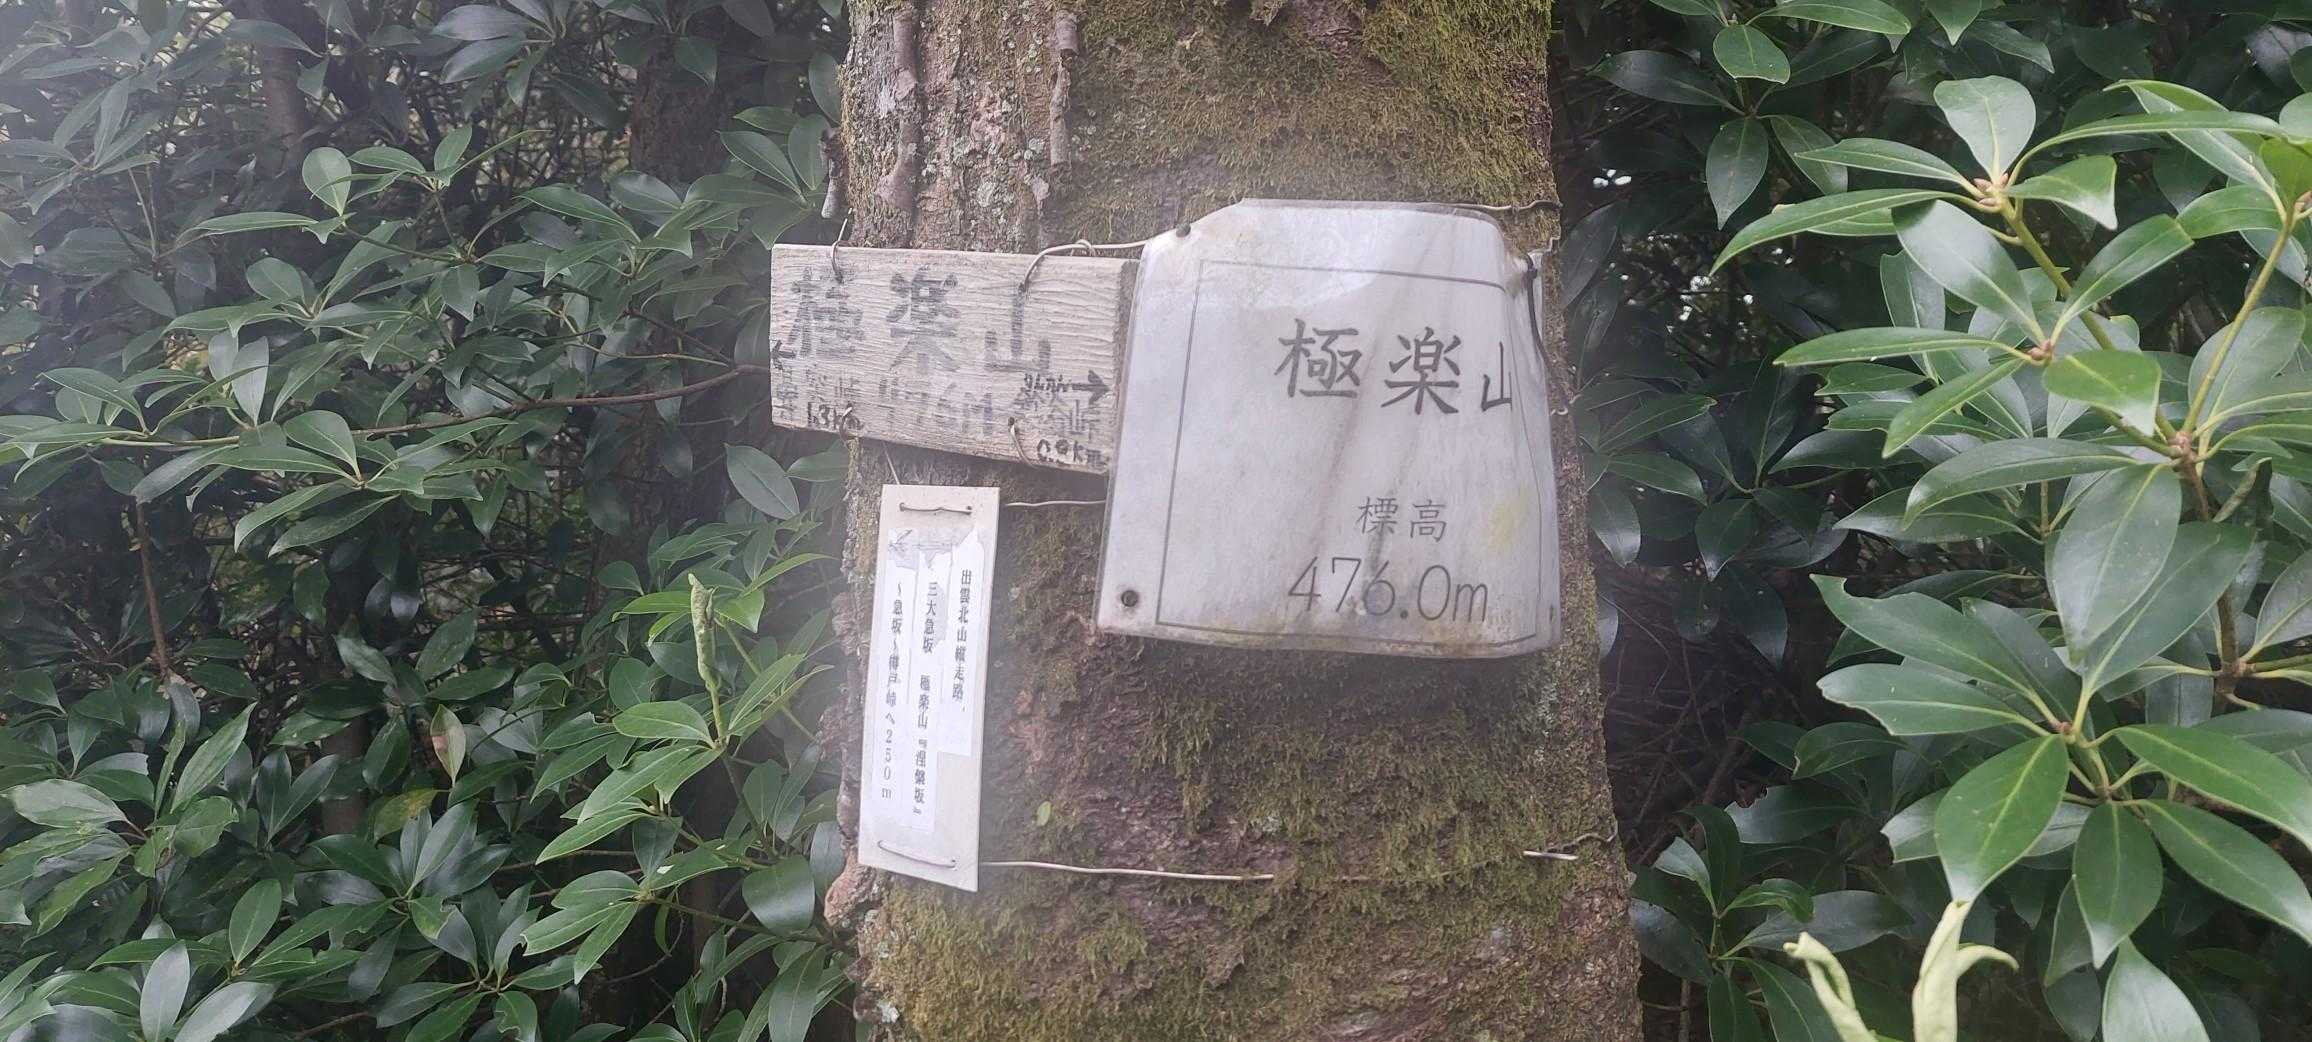 極楽山
476M
1.3km
0.9km
極楽山
標高
476.0m
出雲北山縦走路
三大急坂 極楽山『涅槃坂』
～急坂～樽戸峠へ250m